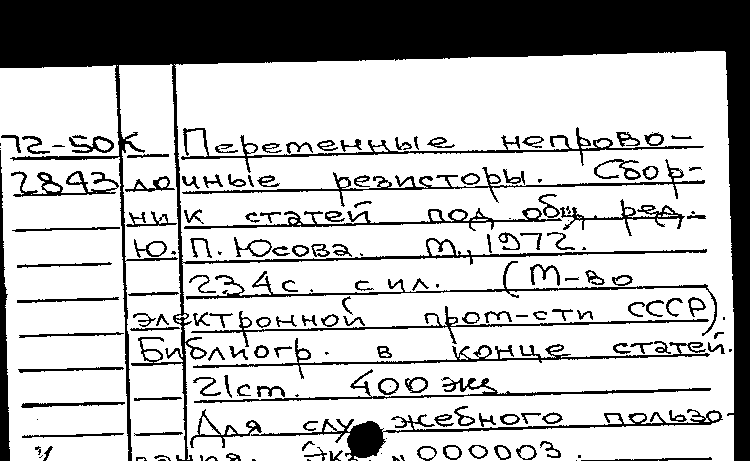 72-50К Переменные непрово-
2843 лочные резисторы. Сбор-
ник статей под общ. ред.
Ю. П. Юсова. М., 1972.
234с. с ил. (М-во
электронной пром-сти СССР).
Библиогр. в конце статей.
21 ст. 400 экз.
Для служебного пользо-
вания. Экз. N 000003.